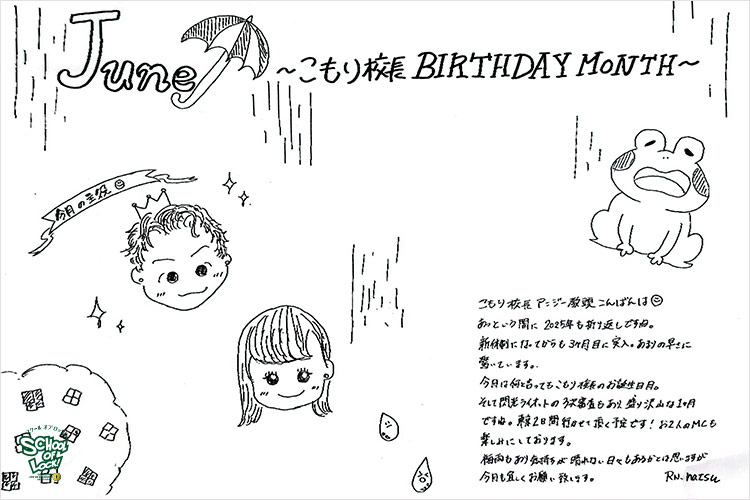 June
~こもり校長 BIRTHDAY MONTH~
今月の主役
こもり校長 アンジー教頭 こんばんは
あっという間に 2025年も折り返しですね。
新体制になってからも 3ヶ月目に突入。あまりの早さに
驚いています。
今月は何と言ってもこもり校長のお誕生日月。
そして閃光ライオットの3次審査もあり 盛り沢山な1ヶ月
ですね。東京2日間行かせて頂く予定です！お2人のMCも
楽しみにしております。
梅雨もあり気持ちが晴れない日々もあるかとは思いますが
今月も宜しくお願い致します。
RN. natsu
スクール オブ ロック
SCHOOL
OF
LOCK!